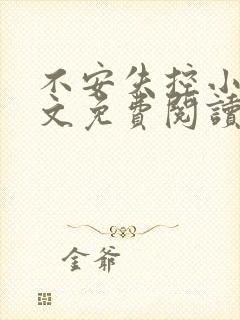 不安失控小
文免費閱讀
金爺